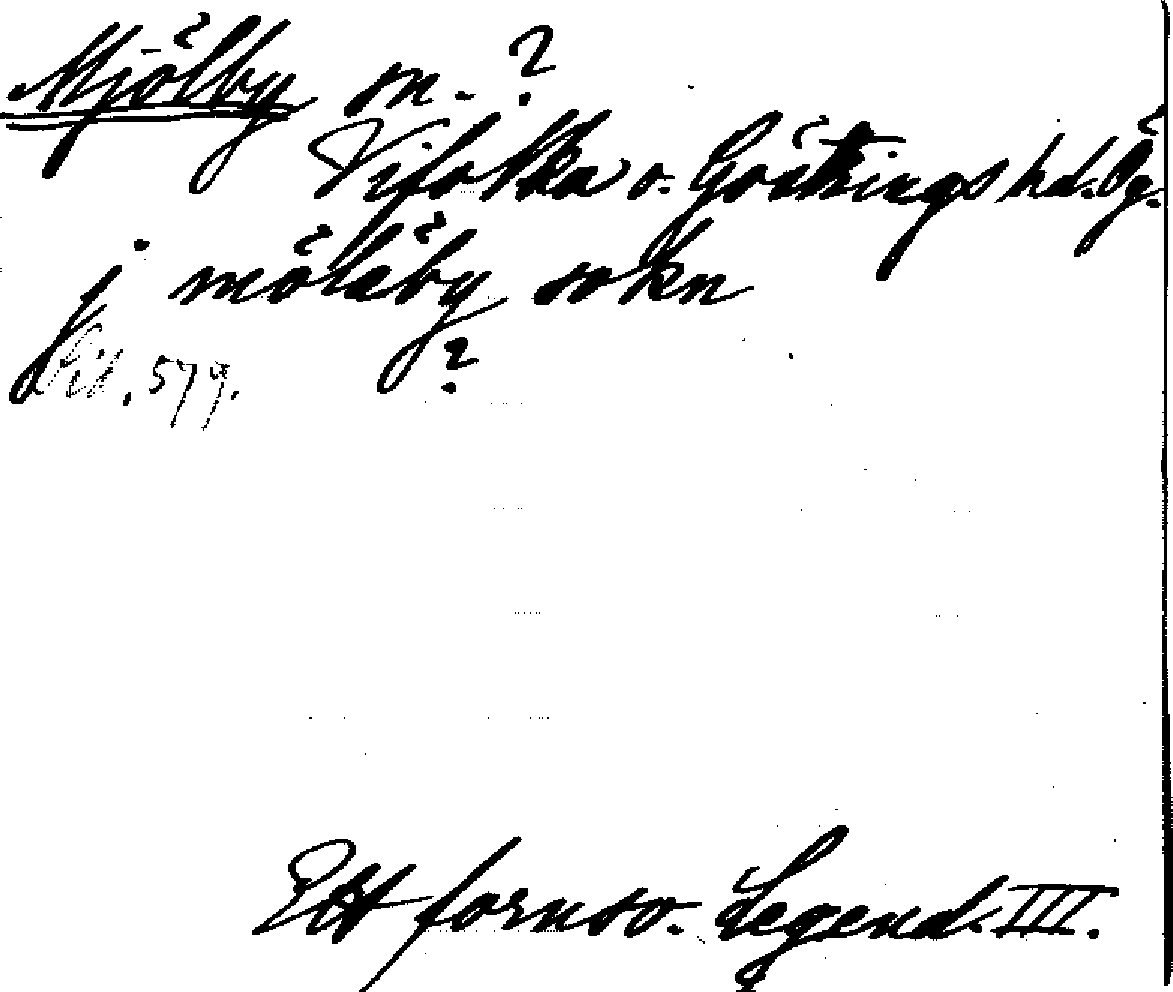 Mjölby sn. ?
Vifolka o. Göstrings hd. Ög.
j mölåby sokn
?
Sid. 579.
Ett fornsv. Legend. III.